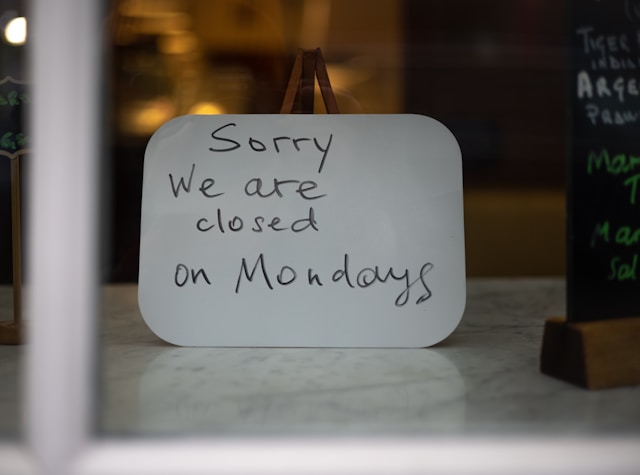 Sorry
We are
closed
on Mondays
TIGER
ARGE
PRAW
Mar
T
Mar
Sal